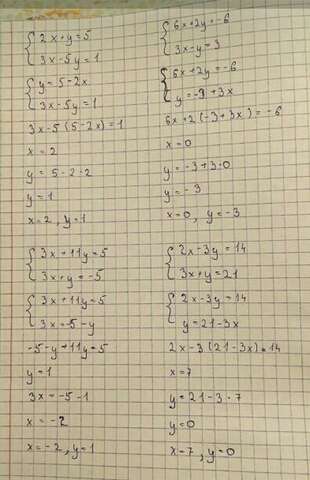 2x+y=5
3x-5y=1
y=5-2x
3x-5y=1
3x-5(5-2x)=1
x=2
y=5-2·2
y=1
x=2, y=1
6x+2y=-6
3x-y=3
6x+2y=-6
y=-3+3x
6x+2(-3+3x)=-6
x=0
y=-3+3·0
y=-3
x=0, y=-3
3x+11y=5
3x+y=-5
3x+11y=5
3x=-5-y
-5-y+11y=5
y=1
3x=-5-1
x=-2
x=-2, y=1
2x-3y=14
3x+y=21
2x-3y=14
y=21-3x
2x-3(21-3x)=14
x=7
y=21-3·7
y=0
x=7, y=0